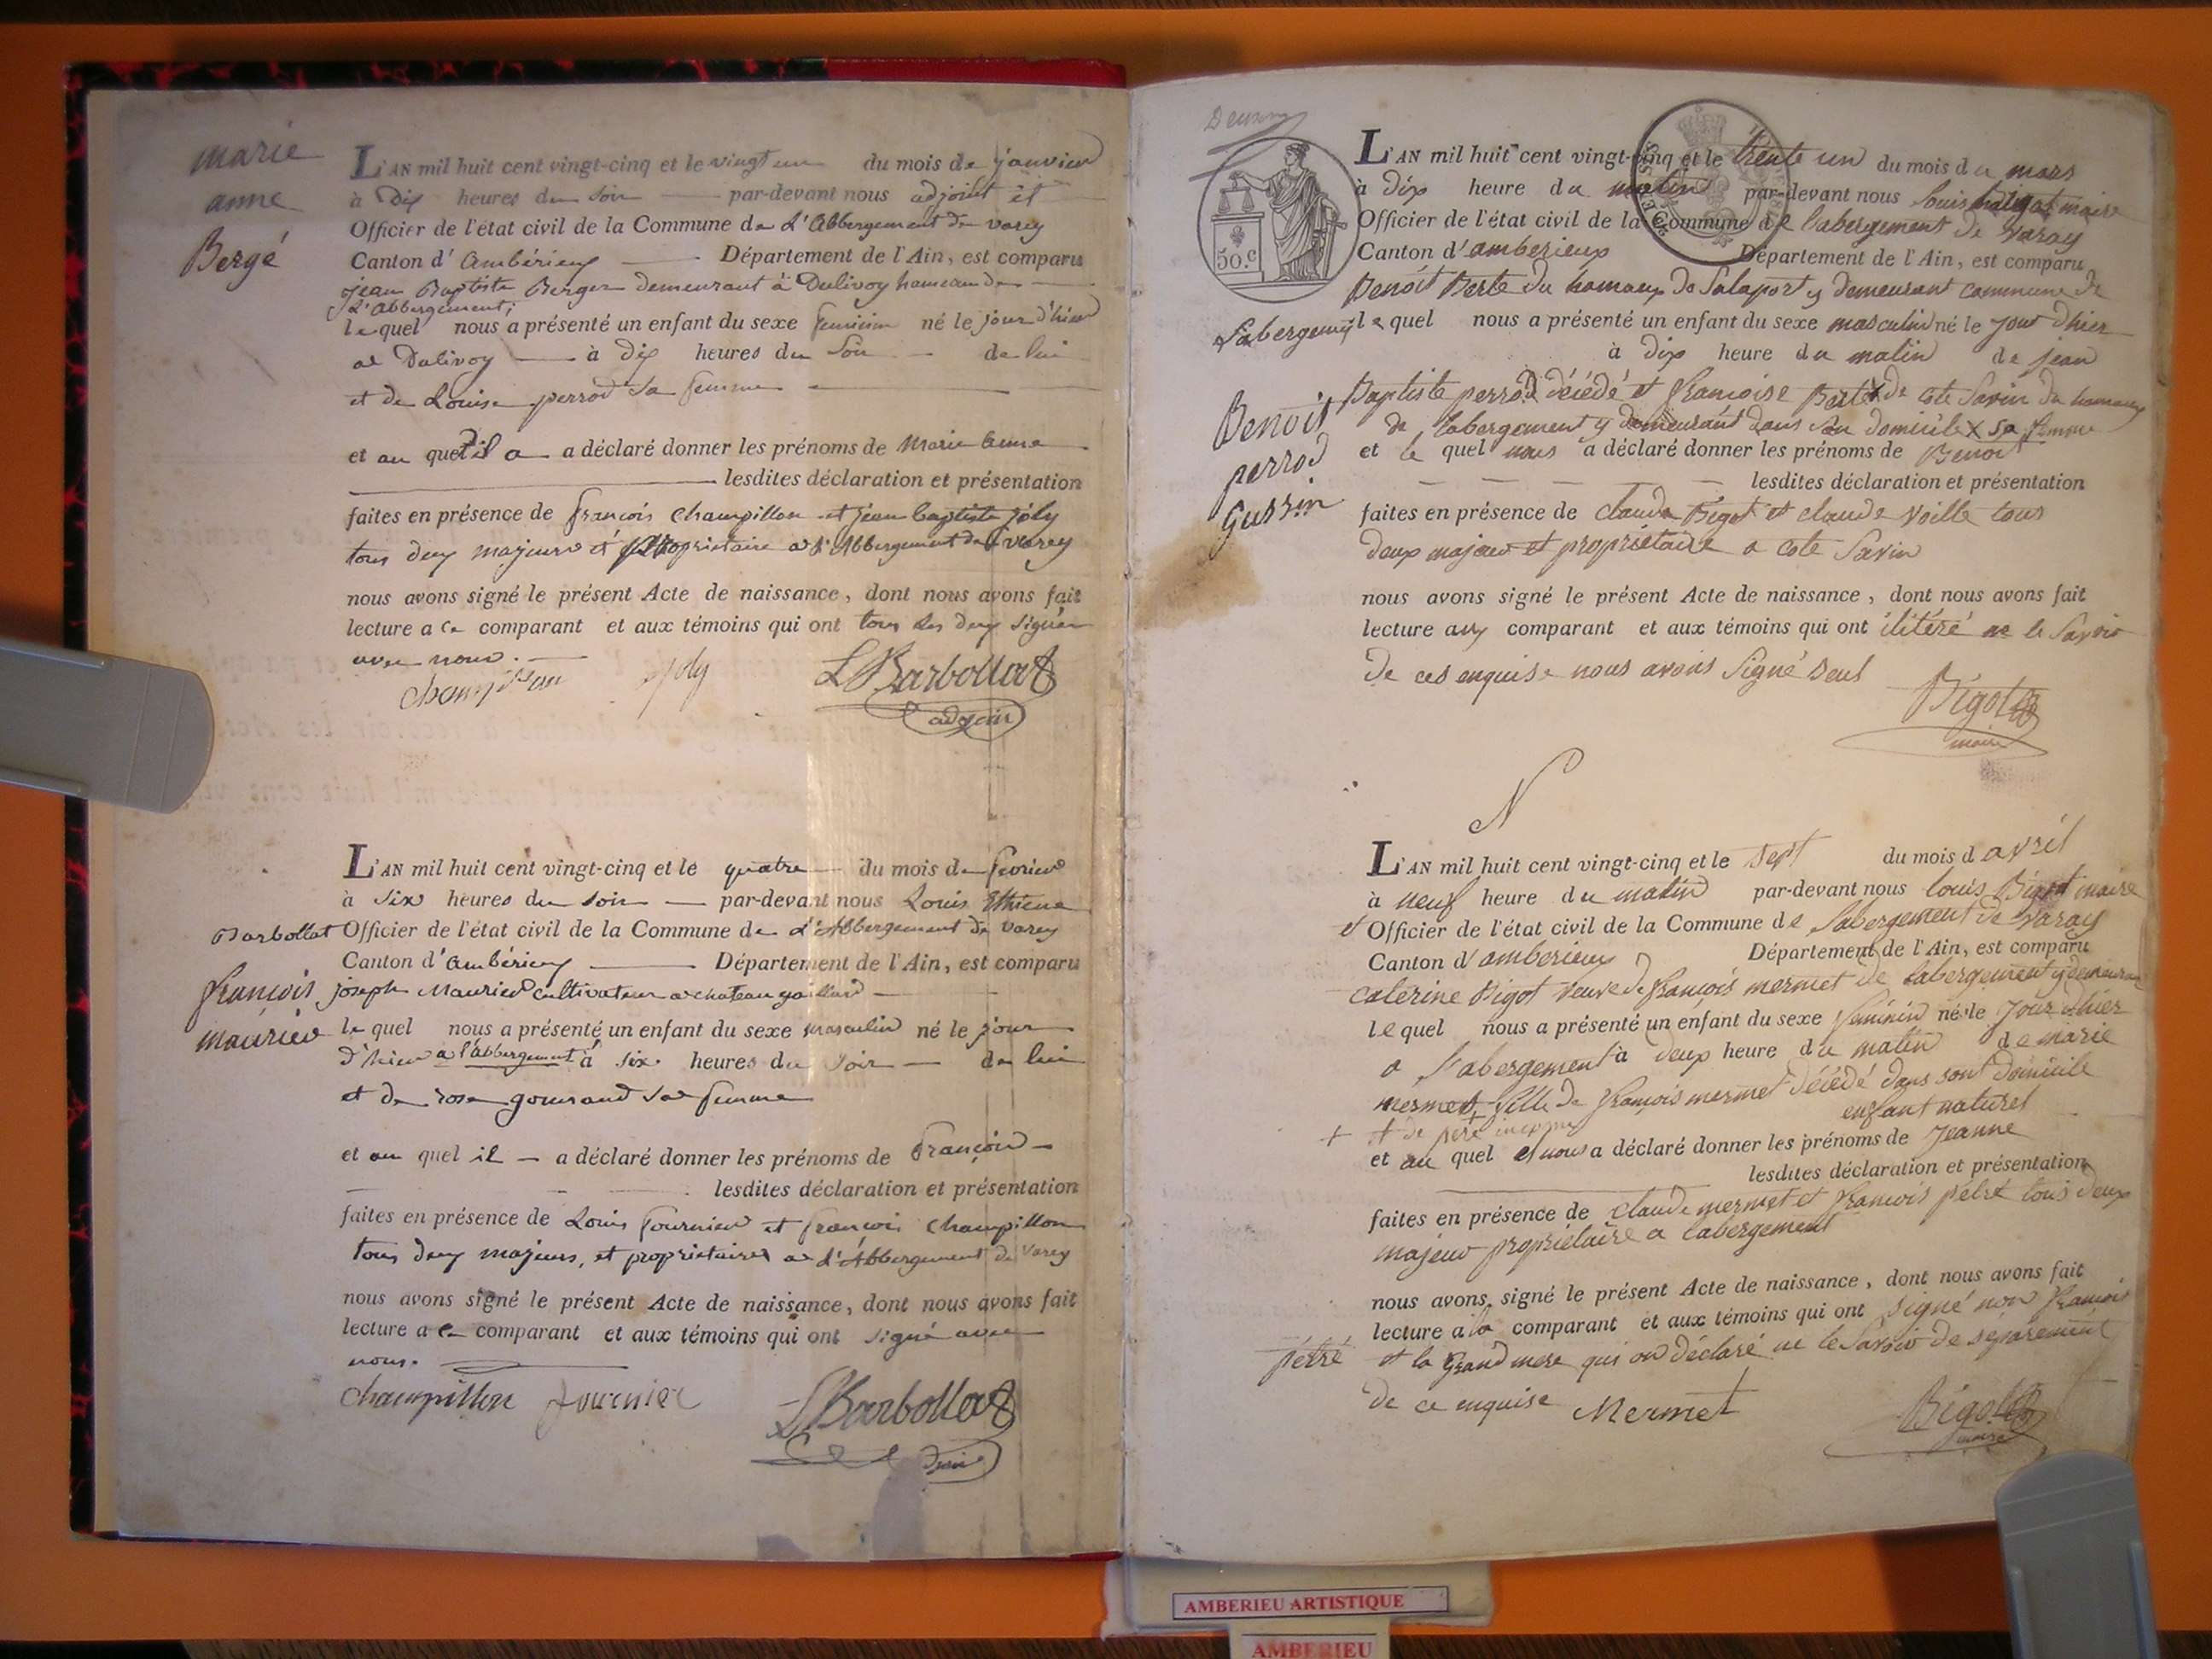 marie
anne
Bergé
L'AN mil huit cent vingt-cinq et le vingt un du mois de janvier
à Dix heures du soir par-devant nous adjoint et
Officier de l'état civil de la Commune de L'Abbergement de varey
Canton d'Ambérieux Département de l'Ain, est comparu
Jean Baptiste Berger demeurant à Dalivoy hameau de
L'Abbergement;
le quel nous a présenté un enfant du sexe feminin né le jour d'hier
a Dalivoy à dix heures du Soir de lui
et de Louise perrod Sa femme
et au quel il a a déclaré donner les prénoms de Marie anne
lesdites déclaration et présentation
faites en présence de françois Champillon et jean baptiste joly
tous deux majeurs et proprietaire a L'Abbergement de varey
nous avons signé le présent Acte de naissance, dont nous avons fait
lecture a ce comparant et aux témoins qui ont tous les deux signés
avec nous.
Champillon joly LBarbollat
adjoin
L'AN mil huit cent vingt-cinq et le quatre du mois de fevrier
à Six heures du soir par-devant nous Louis Ethiene
Barbollat Officier de l'état civil de la Commune de L'Abbergement de varey
Canton d'Ambérieux Département de l'Ain, est comparu
françois joseph Maurier cultivateur a chateau gaillard
maurier le quel nous a présenté un enfant du sexe masculin né le jour
d'hier a l'abbergement à six heures du soir de lui
et de rose gourand sa femme
et au quel il a déclaré donner les prénoms de François
lesdites déclaration et présentation
faites en présence de Louis fournier et françois Champillon
tous deux majeurs, et proprietaires a L'Abbergement de Varey
nous avons signé le présent Acte de naissance, dont nous avons fait
lecture a ce comparant et aux témoins qui ont signé avec
nous.
Champillon fournier LBarbollat
50.c
L'AN mil huit cent vingt-cinq et le trente un du mois du mars
à dix heure du matin par-devant nous louis bigot maire
Officier de l'état civil de la Commune de labergement de Varay
Canton d'amberieux Département de l'Ain, est comparu
Benoit Berte du hamaux de Salaport y demeurant commune de
Labergemt le quel nous a présenté un enfant du sexe masculin né le jour dhier
à dix heure du matin de jean
Baptiste perrod décédé et françoise Berte x de cote Savin du hamaux
de labergement y demeurant dans son domicile x sa femme
Benoit
perrod
Gussin
et le quel nous a déclaré donner les prénoms de Benoit
lesdites déclaration et présentation
faites en présence de claude Bigot et claude Voille tous
deux majeur et propriétaire a cote Savin
nous avons signé le présent Acte de naissance, dont nous avons fait
lecture aux comparant et aux témoins qui ont ilitéré ne le Savoir
de ces enquise nous avons Signé Seul
Bigot
maire
N
L'AN mil huit cent vingt-cinq et le sept du mois d avril
à neuf heure du matin par-devant nous louis Bigot maire
et Officier de l'état civil de la Commune de Labergement de Varay
Canton d'amberieux Département de l'Ain, est comparu
Caterine Bigot veuve de françois mermet de labergement y demeurant
le quel nous a présenté un enfant du sexe feminin né le jour dhier
a labergement à deux heure du matin de marie
mermet + fille de françois mermet décédé dans sont domicile
enfant naturel
+ + de père inconu
et au quel el nous a déclaré donner les prénoms de Jeanne
lesdites déclaration et présentation
faites en présence de claude mermet et françois pétré tous deux
majeur propriétaire a labergement
nous avons signé le présent Acte de naissance, dont nous avons fait
lecture a la comparant et aux témoins qui ont signé non françois
pétré et la Grand mere qui on déclaré ne le Savoir de séparement
de ce enquise Mermet Bigot
maire
AMBERIEU ARTISTIQUE
AMBERIEU